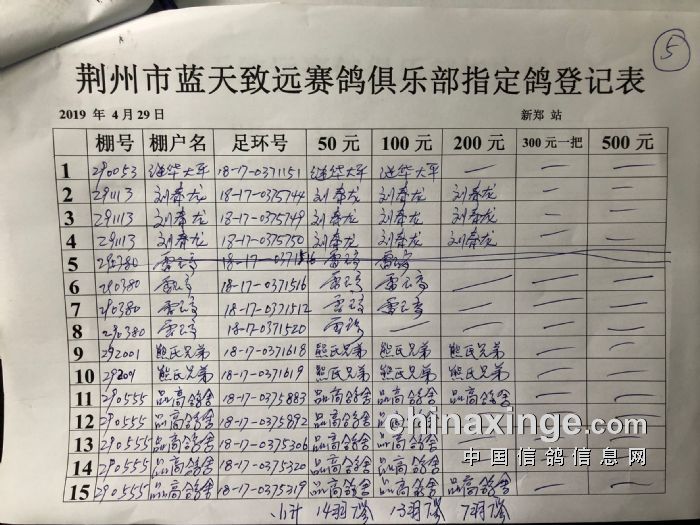 5
荆州市蓝天致远赛鸽俱乐部指定鸽登记表
2019 年 4 月 29 日 新郑 站
棚号 棚户名 足环号 50 元 100 元 200 元 300 元一把 500 元
1 290053 继华大平 18-17-0371151 继华大平 继华大平 — — —
2 291113 刘春龙 18-17-0375744 刘春龙 刘春龙 刘春龙 — —
3 29113 刘春龙 18-17-0375749 刘春龙 刘春龙 刘春龙 — —
4 29113 刘春龙 18-17-0375750 刘春龙 刘春龙 刘春龙 — —
5 290380 18-17-0371516
6 290380 18-17-0371516 — — —
7 290380 18-17-0371512 — — —
8 290380 18-17-0371520 — — — —
9 292001 熊氏兄弟 18-17-0371618 熊氏兄弟 熊氏兄弟 熊氏兄弟 — —
10 29201 熊氏兄弟 18-17-0371619 熊氏兄弟 熊氏兄弟 熊氏兄弟 — —
11 290555 品高鸽舍 18-17-0375883 品高鸽舍 品高鸽舍 品高鸽舍 — —
12 290555 品高鸽舍 18-17-0375892 品高鸽舍 品高鸽舍
13 290555 品高鸽舍 18-17-0375306 品高鸽舍 品高鸽舍
14 290555 品高鸽舍 18-17-0375320 品高鸽舍 品高鸽舍
15 290555 品高鸽舍 18-17-0375319 品高鸽舍 品高鸽舍 品高鸽舍 — —
小计 14羽 13羽 7羽
chinaxinge.com
中国信鸽信息网